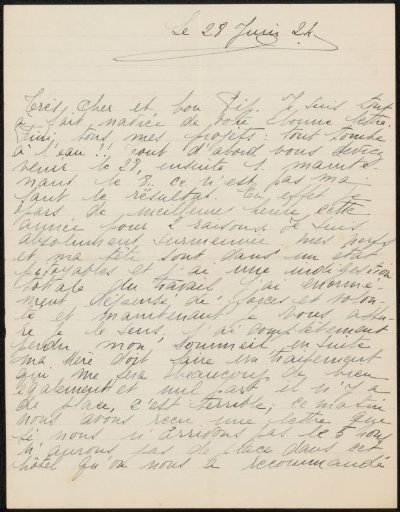 Le 28 Juin 24
Très cher et bon Pif. Je suis tout
à fait navrée de votre bonne lettre.
Fini tous mes projets : tout tombe
à l'eau !! tout d'abord vous deviez
venir le 29, ensuite le 1, mainte-
nant le 8. ce n'est pas ma
faute le résultat. En effet je
pars de meilleure heure cette
année pour 2 raisons. Je suis
absolument surmenée mes nerfs
et ma tête sont dans un état
pitoyables et j'ai une indigestion
totale du travail j'ai énormé-
ment dépensé de forces et volon-
té et maintenant je vous assu-
re je le sens. J'ai complètement
perdu mon sommeil ensuite
ma Mère doit faire un traitement
qui me sera beaucoup de bien
également et nul part il n'y a
de place, c'est terrible, ce matin
nous avons reçu une lettre que
si nous n'arrivons pas le 5 nous
n'aurons pas de place dans cet
hôtel qu'on nous a recommandé